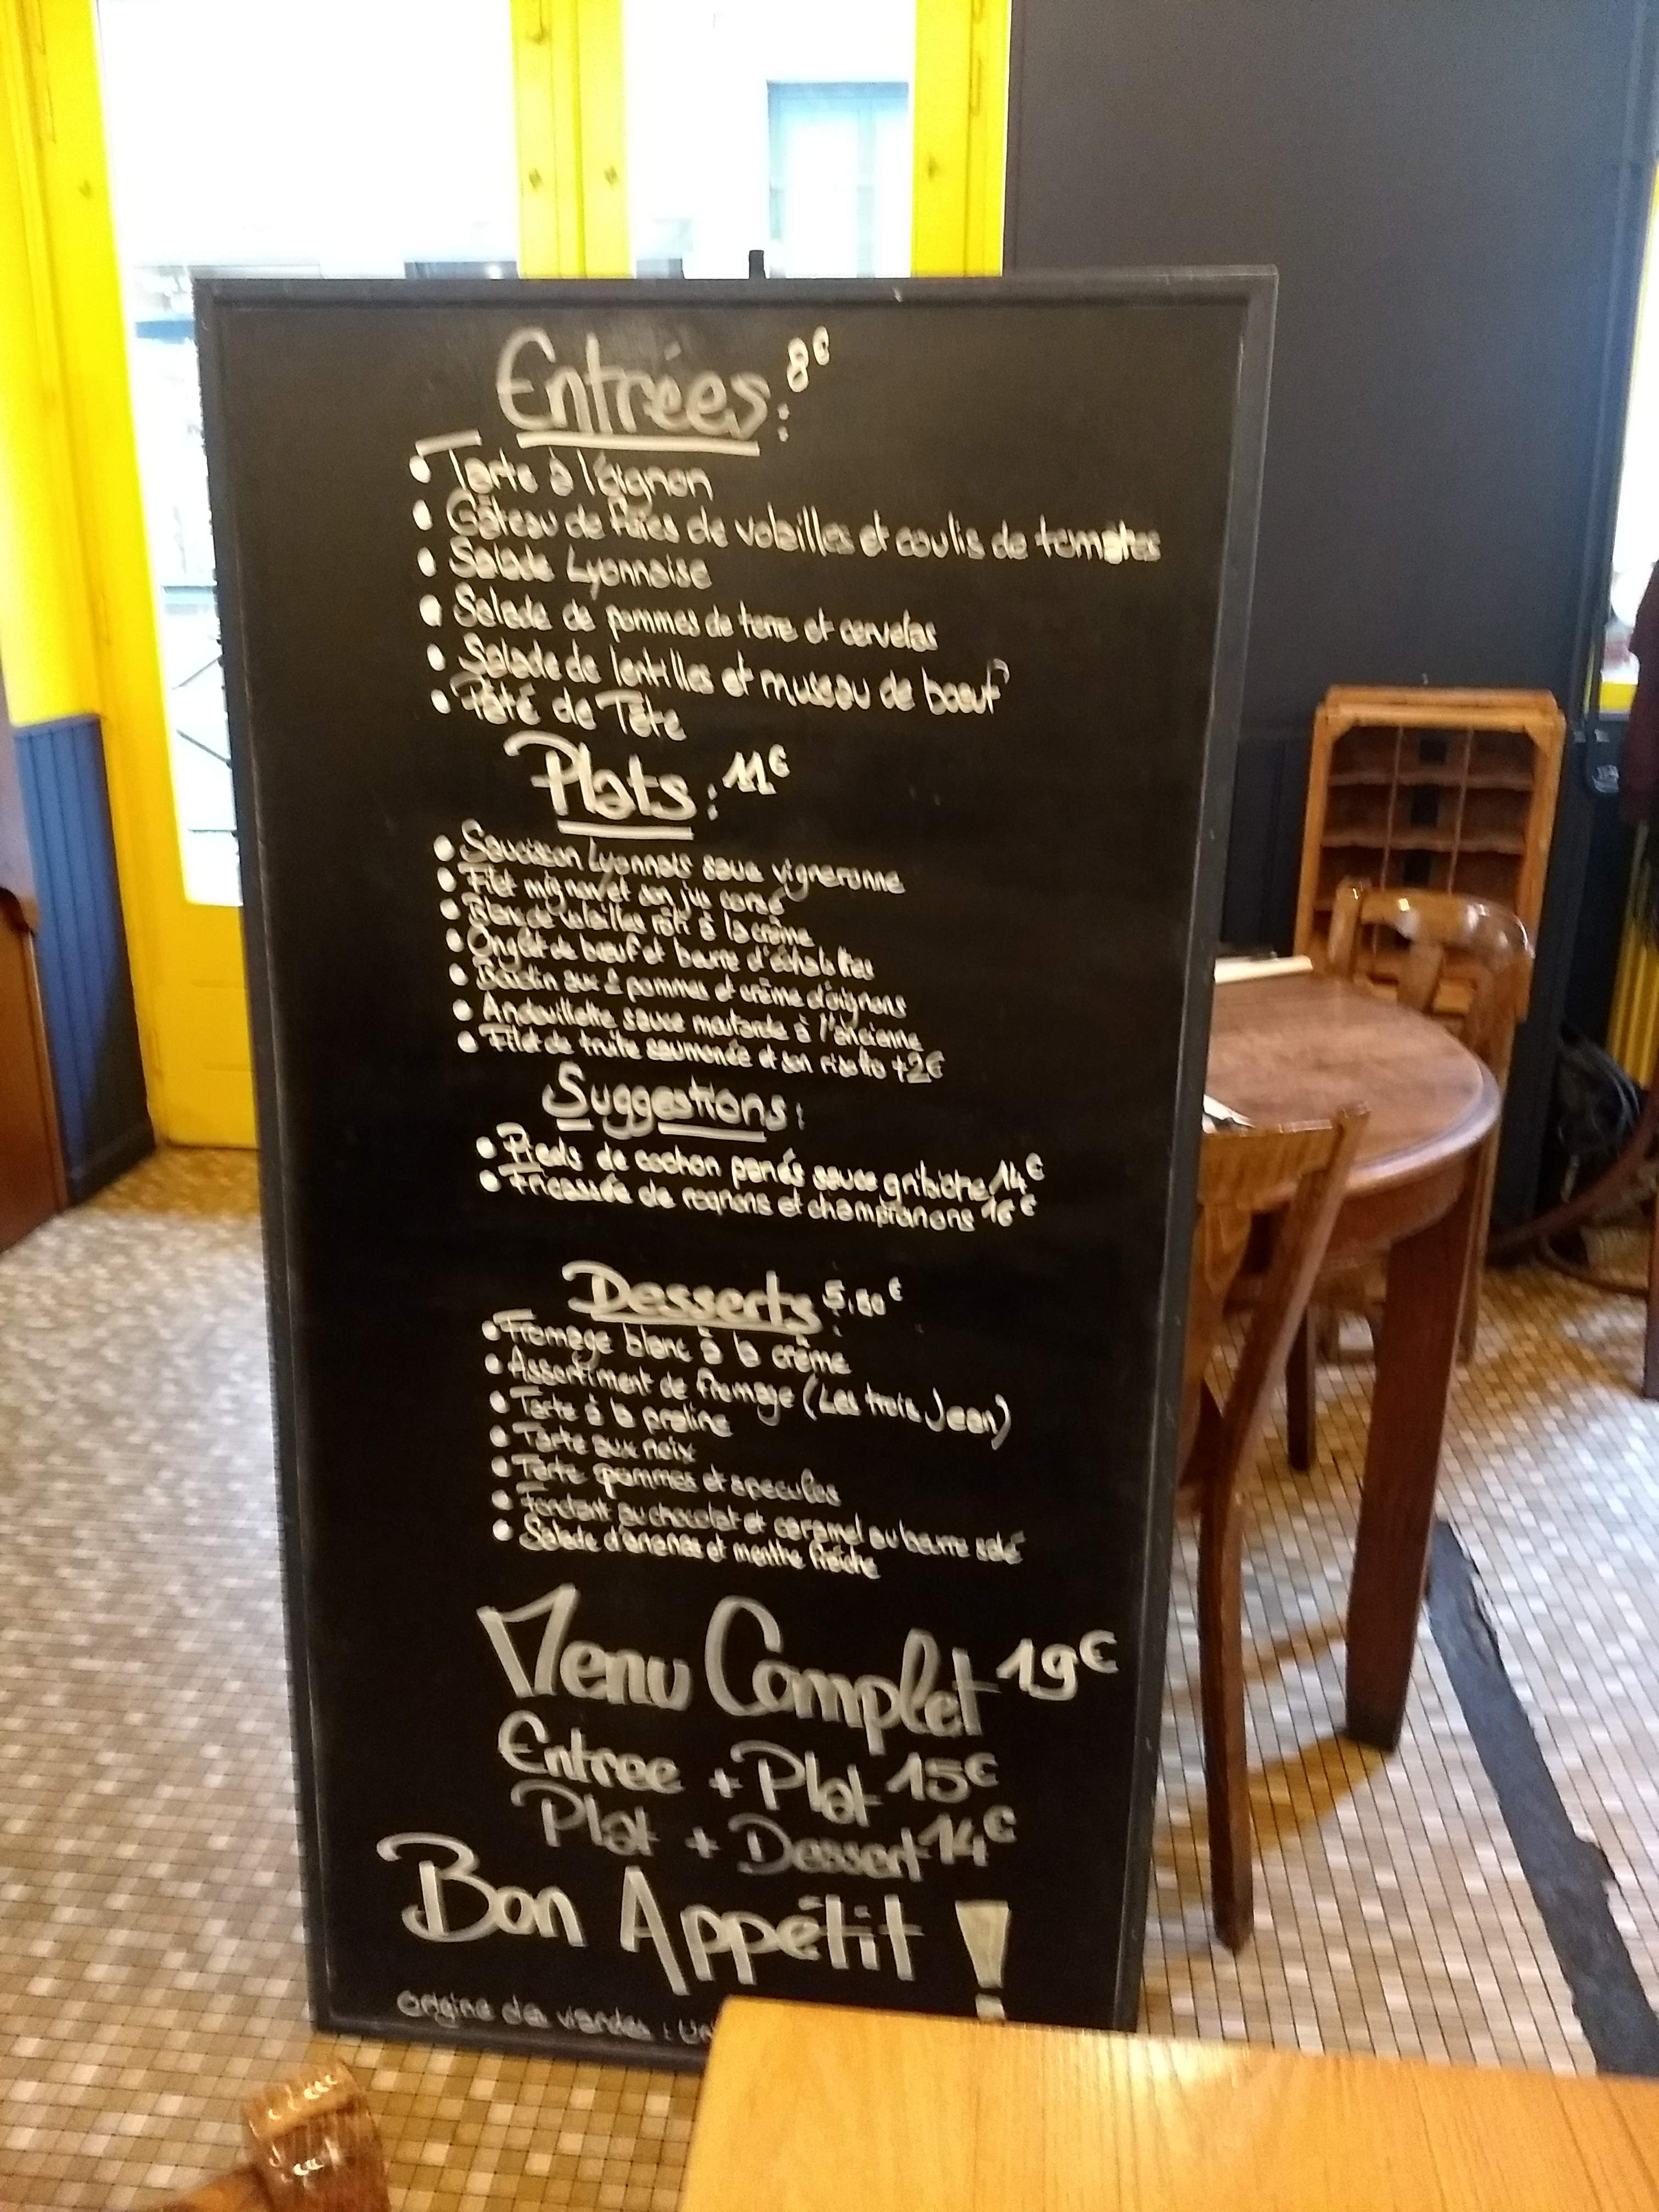 Entrées : 8€
• Tarte à l'oignon
• Gâteau de foies de volailles et coulis de tomates
• Salade Lyonnaise
• Salade de pommes de terre et cervelas
• Salade de lentilles et museau de bœuf
• Pâté de Tête
Plats : 11€
• Saucisson Lyonnais sauce vigneronne
• Filet mignon et son jus corsé
• Blanc de volailles rôti à la crème
• Onglet de bœuf et beurre d'échalottes
• Boudin aux 2 pommes et crème d'oignons
• Andouillette sauce moutarde à l'ancienne
• Filet de truite saumonée et son risotto +2€
Suggestions :
• Pieds de cochon panés sauce gribiche 14€
• Fricassée de rognons et champignons 16€
Desserts : 5,50€
• Fromage blanc à la crème
• Assortiment de fromage (Les trois Jean)
• Tarte à la praline
• Tarte aux noix
• Tarte pommes et speculos
• Fondant au chocolat et caramel au beurre salé
• Salade d'ananas et menthe fraîche
Menu Complet 19€
Entree + Plat 15€
Plat + Dessert 14€
Bon Appétit !
Origine des viandes :